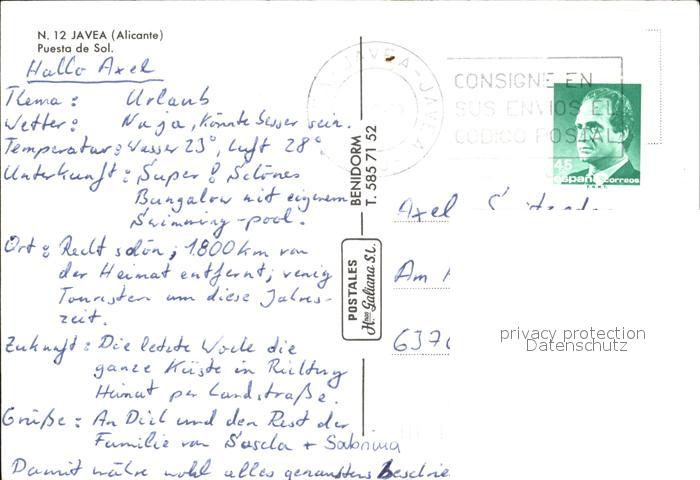 N. 12 JAVEA (Alicante)
Puesta de Sol.
Hallo Axel
Thema: Urlaub
Wetter: Naja, könnte besser sein.
Temperatur: Wasser 23°, Luft 28°.
Unterkunft: Super! Schönes
Bungalow mit eigenem
Swimming-pool.
Ort: Recht schön, 1800 km von
der Heimat entfernt, wenig
Touristen um diese Jahres-
zeit.
Zukunft: Die letzte Woche die
ganze Küste in Richtung
Heimat per Landstraße.
Grüße: An Dich und den Rest der
Familie von Sascha + Sabrina
Damit wäre wohl alles genaustens beschrie
BENIDORM
T. 585 71 52
POSTALES
Hnos Galiana S.L.
JAVEA-JAVEA
CONSIGNE EN
SUS ENVIOS EL
CODIGO POSTAL
45
españa correos
Axel
Am
637
privacy protection
Datenschutz